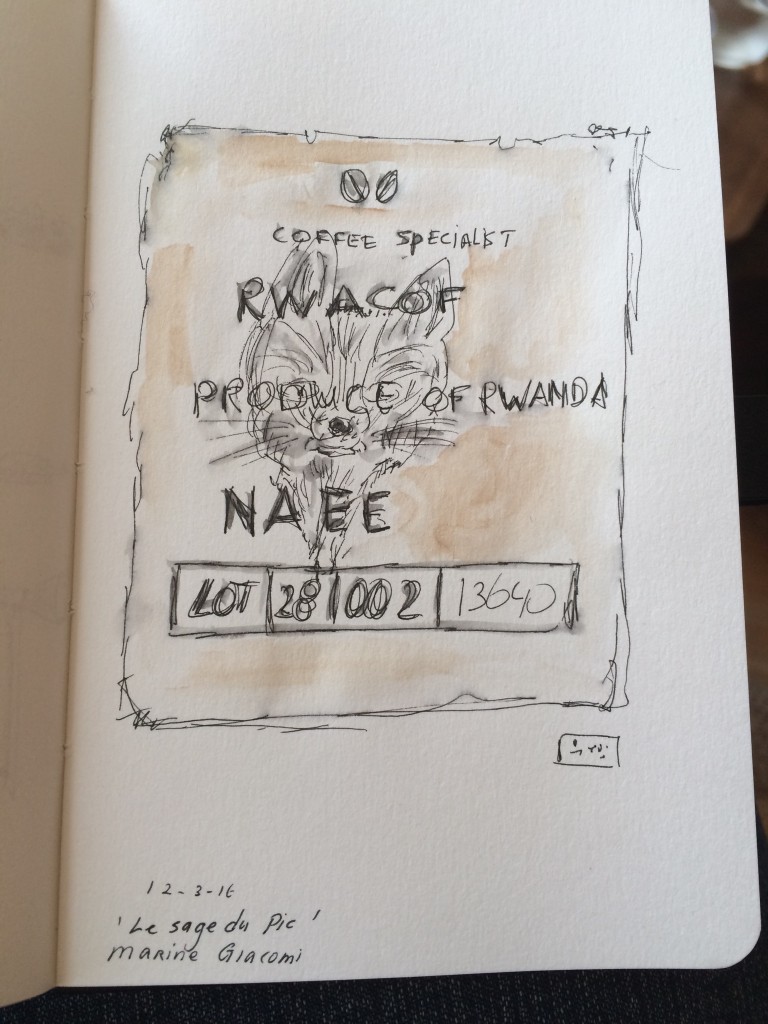 COFFEE SPECIALIST
RWACOF
PRODUCE OF RWANDA
NAEE
LOT 28 002 13640
12-3-16
'Le sage du Pic'
Marine Giacomi